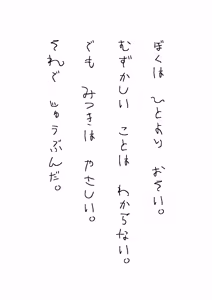 ぼくは ひとより おそい。
むずかしい ことは わからない。
でも みつきは やさしい。
それで じゅうぶんだ。